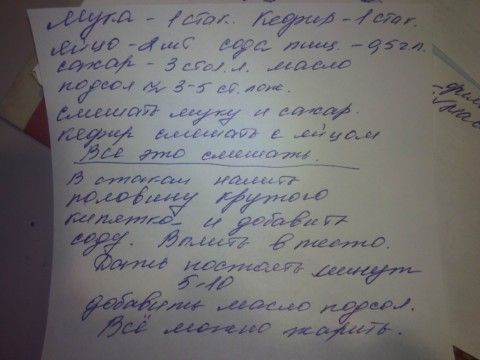 Мука - 1 стак. Кефир - 1 стак.
яйцо - 2 шт сода пищ. - 0,5 ч л.
сахар - 3 стол. л. масло
подсол 3-5 ст. лож.
смешать муку и сахар.
Кефир смешать с яйцом
Всё это смешать.
В стакан налить
половину крутого
кипятка и добавить
соду. Влить в тесто.
Дать постоять минут
5-10
добавить масло подсол.
Всё можно жарить.